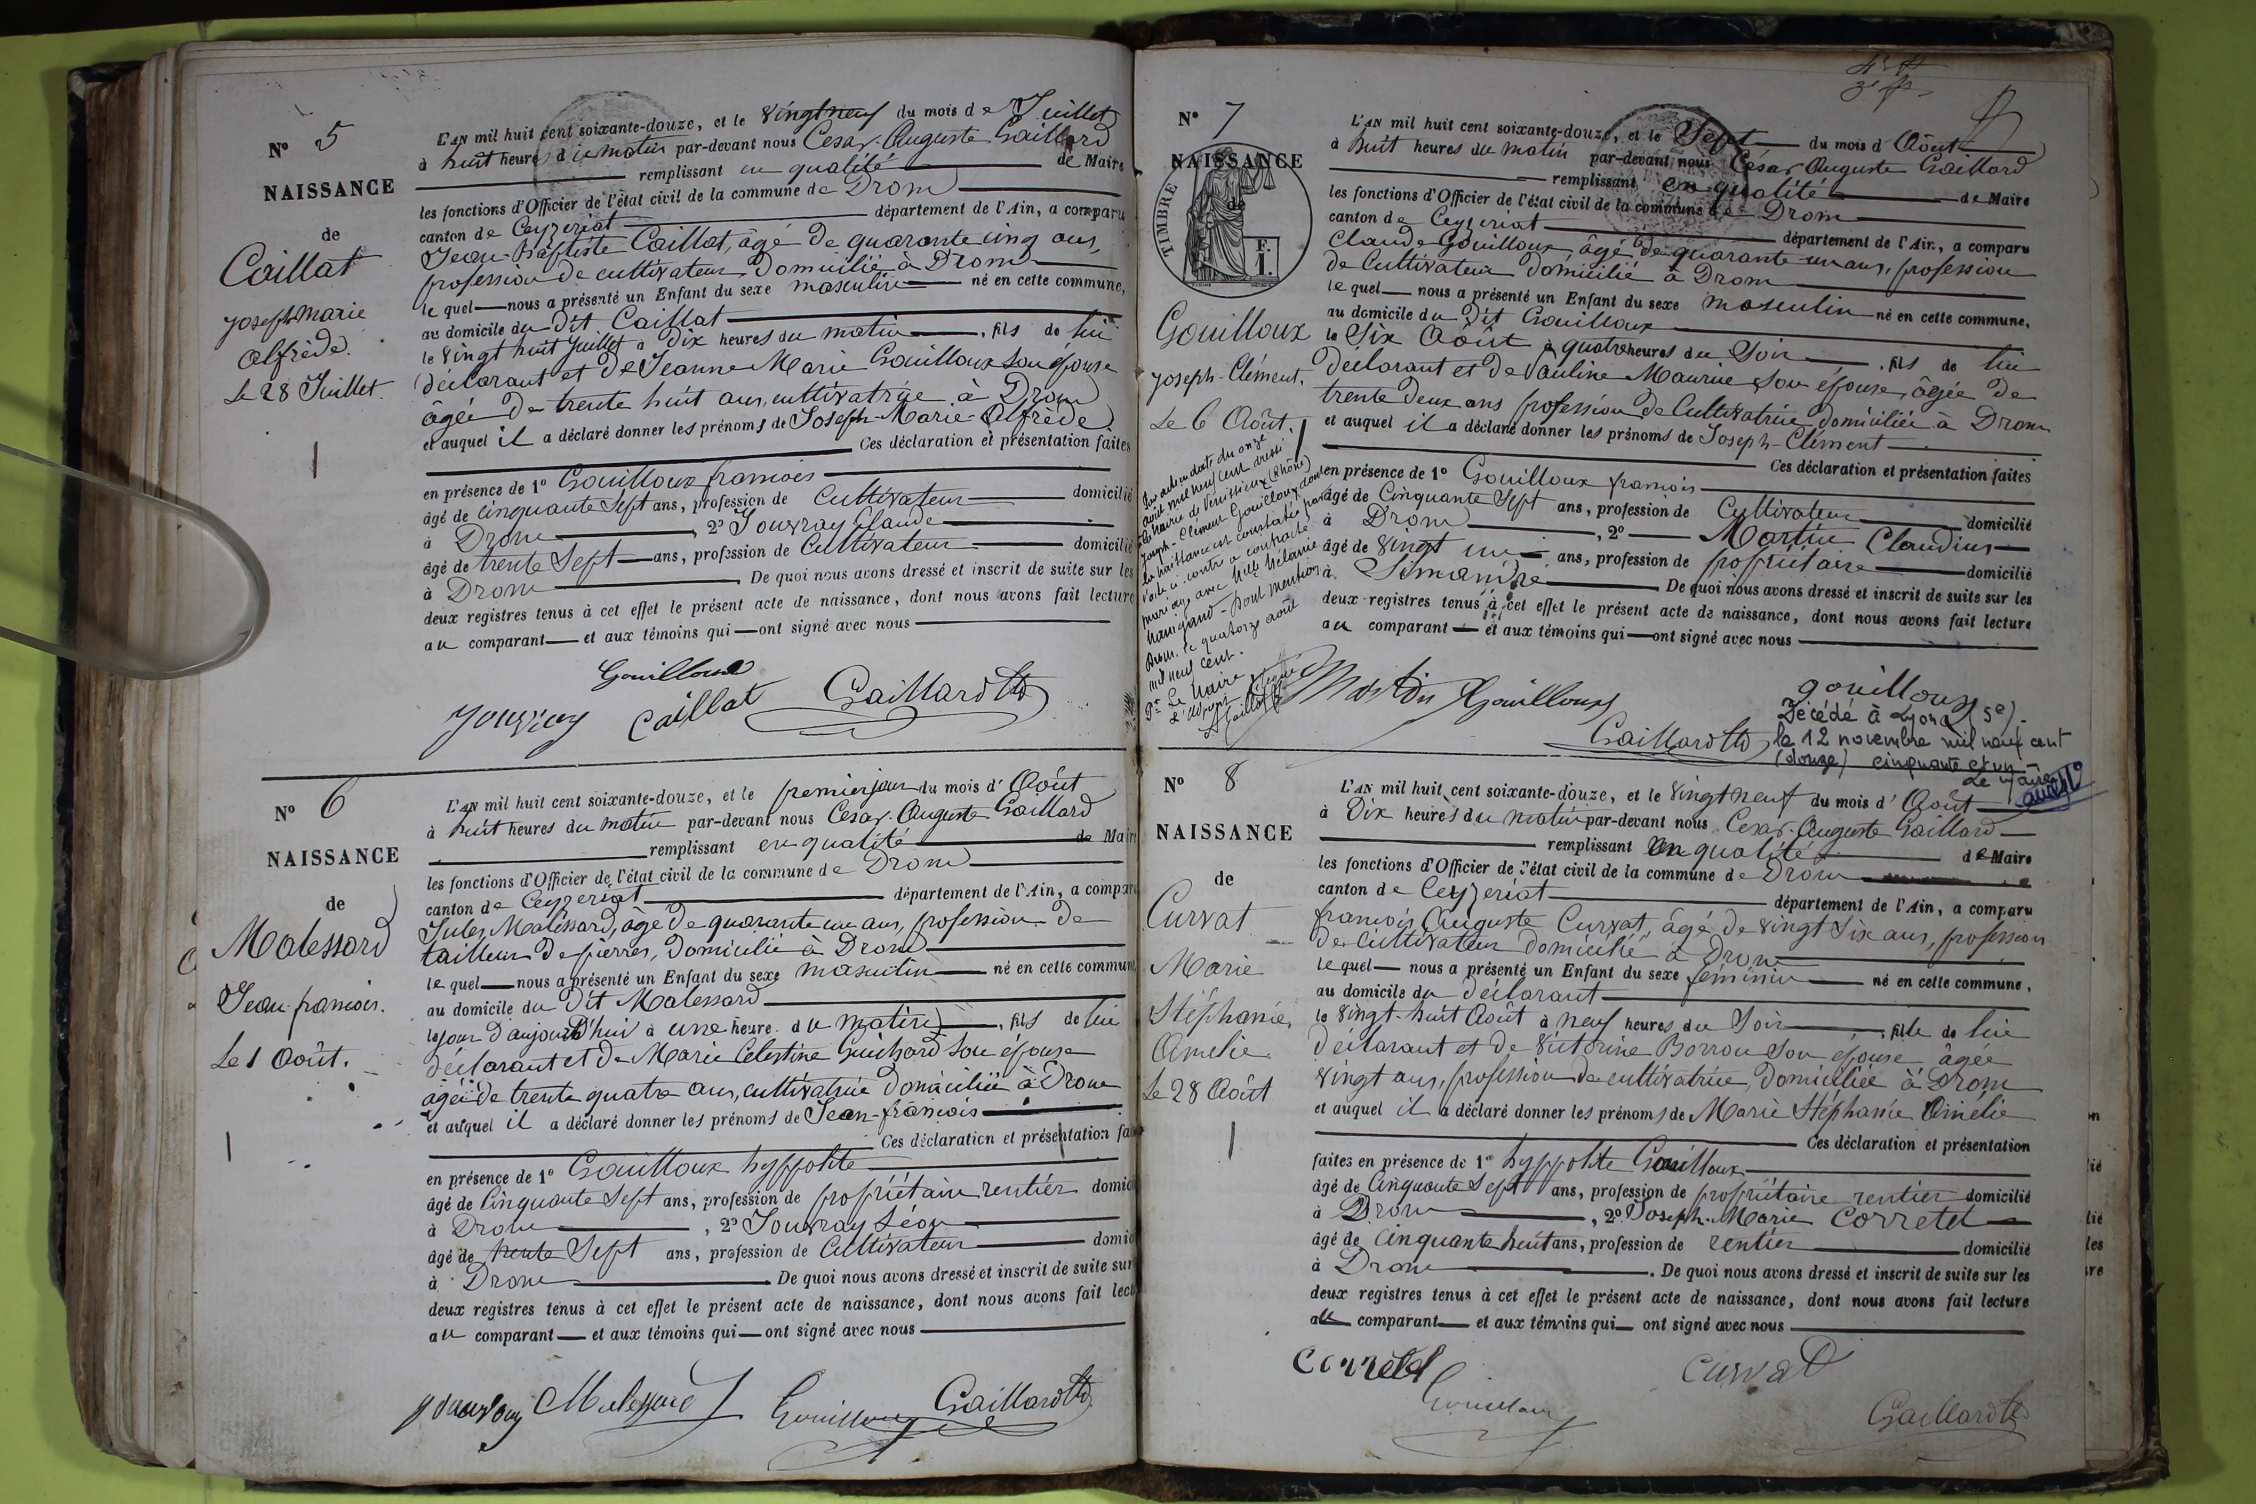 N° 5
NAISSANCE
de
Caillat
Joseph Marie
Alfrède.
Le 28 Juillet.
L'AN mil huit cent soixante-douze, et le vingt neuf du mois de Juillet
à huit heures du matin par-devant nous César-Auguste Gaillard
remplissant en qualité de Maire
les fonctions d'Officier de l'état civil de la commune de Drom
canton de Ceyzeriat département de l'Ain, a comparu
Jean-Baptiste Caillat, âgé de quarante cinq ans,
profession de cultivateur domicilié à Drom
le quel nous a présenté un Enfant du sexe masculin né en cette commune,
au domicile du dit Caillat
le vingt huit Juillet à dix heures du matin, fils de lui
déclarant et de Jeanne Marie Gouilloux son épouse
âgée de trente huit ans, cultivatrice à Drom
et auquel il a déclaré donner les prénoms de Joseph-Marie-Alfrède
Ces déclaration et présentation faites
en présence de 1° Gouilloux françois
âgé de cinquante sept ans, profession de cultivateur domicilié
à Drom, 2° Jouvray Claude
âgé de trente sept ans, profession de Cultivateur domicilié
à Drom. De quoi nous avons dressé et inscrit de suite sur les
deux registres tenus à cet effet le présent acte de naissance, dont nous avons fait lecture
au comparant et aux témoins qui ont signé avec nous
Gouilloux
Jouvray Caillat Gaillard
N° 6
NAISSANCE
de
Malessard
Jean-françois.
Le 1 Août.
L'AN mil huit cent soixante-douze, et le premier jour du mois d'Août
à huit heures du matin par-devant nous César-Auguste Gaillard
remplissant en qualité de Maire
les fonctions d'Officier de l'état civil de la commune de Drom
canton de Ceyzeriat département de l'Ain, a comparu
Jules Malessard, âgé de quarante un ans, profession de
tailleur de pierres, domicilié à Drom
le quel nous a présenté un Enfant du sexe masculin né en cette commune
au domicile du dit Malessard
le jour d'aujourd'hui à une heure du matin, fils de lui
déclarant et de Marie Célestine Guichard son épouse
âgée de trente quatre ans, cultivatrice domiciliée à Drom
et auquel il a déclaré donner les prénoms de Jean-françois
Ces déclaration et présentation fai
en présence de 1° Gouilloux hyppolite
âgé de Cinquante sept ans, profession de propriétaire rentier domic
à Drom, 2° Jouvray Léon
âgé de trente sept ans, profession de Cultivateur domic
à Drom. De quoi nous avons dressé et inscrit de suite sur
deux registres tenus à cet effet le présent acte de naissance, dont nous avons fait lect
au comparant et aux témoins qui ont signé avec nous
Jouvray Malessard Gouilloux Gaillard
N° 7
NAISSANCE
de
TIMBRE
Gouilloux
Joseph-Clément.
Le 6 Août.
L'AN mil huit cent soixante-douze, et le Sept du mois d'Août
à huit heures du matin par-devant nous César Auguste Gaillard
remplissant en qualité de Maire
les fonctions d'Officier de l'état civil de la commune de Drom
canton de Ceyzeriat département de l'Ain, a comparu
Claude Gouilloux, âgé de quarante un ans, profession
de Cultivateur domicilié à Drom
le quel nous a présenté un Enfant du sexe masculin né en cette commune,
au domicile du dit Gouilloux
le Six Août à quatre heures du Soir, fils de lui
déclarant et de Pauline Maurice son épouse, âgée de
trente deux ans profession de Cultivatrice domiciliée à Drom
et auquel il a déclaré donner les prénoms de Joseph-Clément
Ces déclaration et présentation faites
en présence de 1° Gouilloux françois
âgé de Cinquante Sept ans, profession de Cultivateur domicilié
à Drom, 2° Martin Claudius
âgé de vingt un ans, profession de propriétaire domicilié
à Simandre De quoi nous avons dressé et inscrit de suite sur les
deux registres tenus à cet effet le présent acte de naissance, dont nous avons fait lecture
au comparant et aux témoins qui ont signé avec nous
Par acte en date du onze
août mil neuf cent dressé
à la mairie de Vénissieux (Rhône)
Joseph-Clément Gouilloux dont
la naissance est constatée par
l'acte ci-contre a contracté
mariage avec Melle Mélanie
pour mention
Drom, le quatorze août
mil neuf cent.
Le Maire
Martin Gouilloux
gouilloux
Gaillard
Décédé à Lyon (5e)
le 12 novembre mil neuf cent
(douze) cinquante et un
Le Maire
N° 8
NAISSANCE
de
Curvat
Marie
Stéphanie
Amelie.
Le 28 Août
L'AN mil huit cent soixante-douze, et le vingt neuf du mois d'Août
à Dix heures du matin par-devant nous César-Auguste Gaillard
remplissant en qualité de Maire
les fonctions d'Officier de l'état civil de la commune de Drom
canton de Ceyzeriat département de l'Ain, a comparu
françois Auguste Curvat, âgé de vingt Six ans, profession
de cultivateur domicilié à Drom
le quel nous a présenté un Enfant du sexe féminin né en cette commune,
au domicile du déclarant
le vingt-huit Août à neuf heures du Soir, fille de lui
déclarant et de Victorine Borron son épouse âgée
vingt ans, profession de cultivatrice, domiciliée à Drom
et auquel il a déclaré donner les prénoms de Marie Stéphanie Amélie
Ces déclaration et présentation
faites en présence de 1° hyppolite Gouilloux
âgé de Cinquante Sept ans, profession de propriétaire rentier domicilié
à Drom, 2° Joseph-Marie Corretel
âgé de cinquante huit ans, profession de rentier domicilié
à Drom. De quoi nous avons dressé et inscrit de suite sur les
deux registres tenus à cet effet le présent acte de naissance, dont nous avons fait lecture
au comparant et aux témoins qui ont signé avec nous
Corretel Curvat
Gouilloux Gaillard